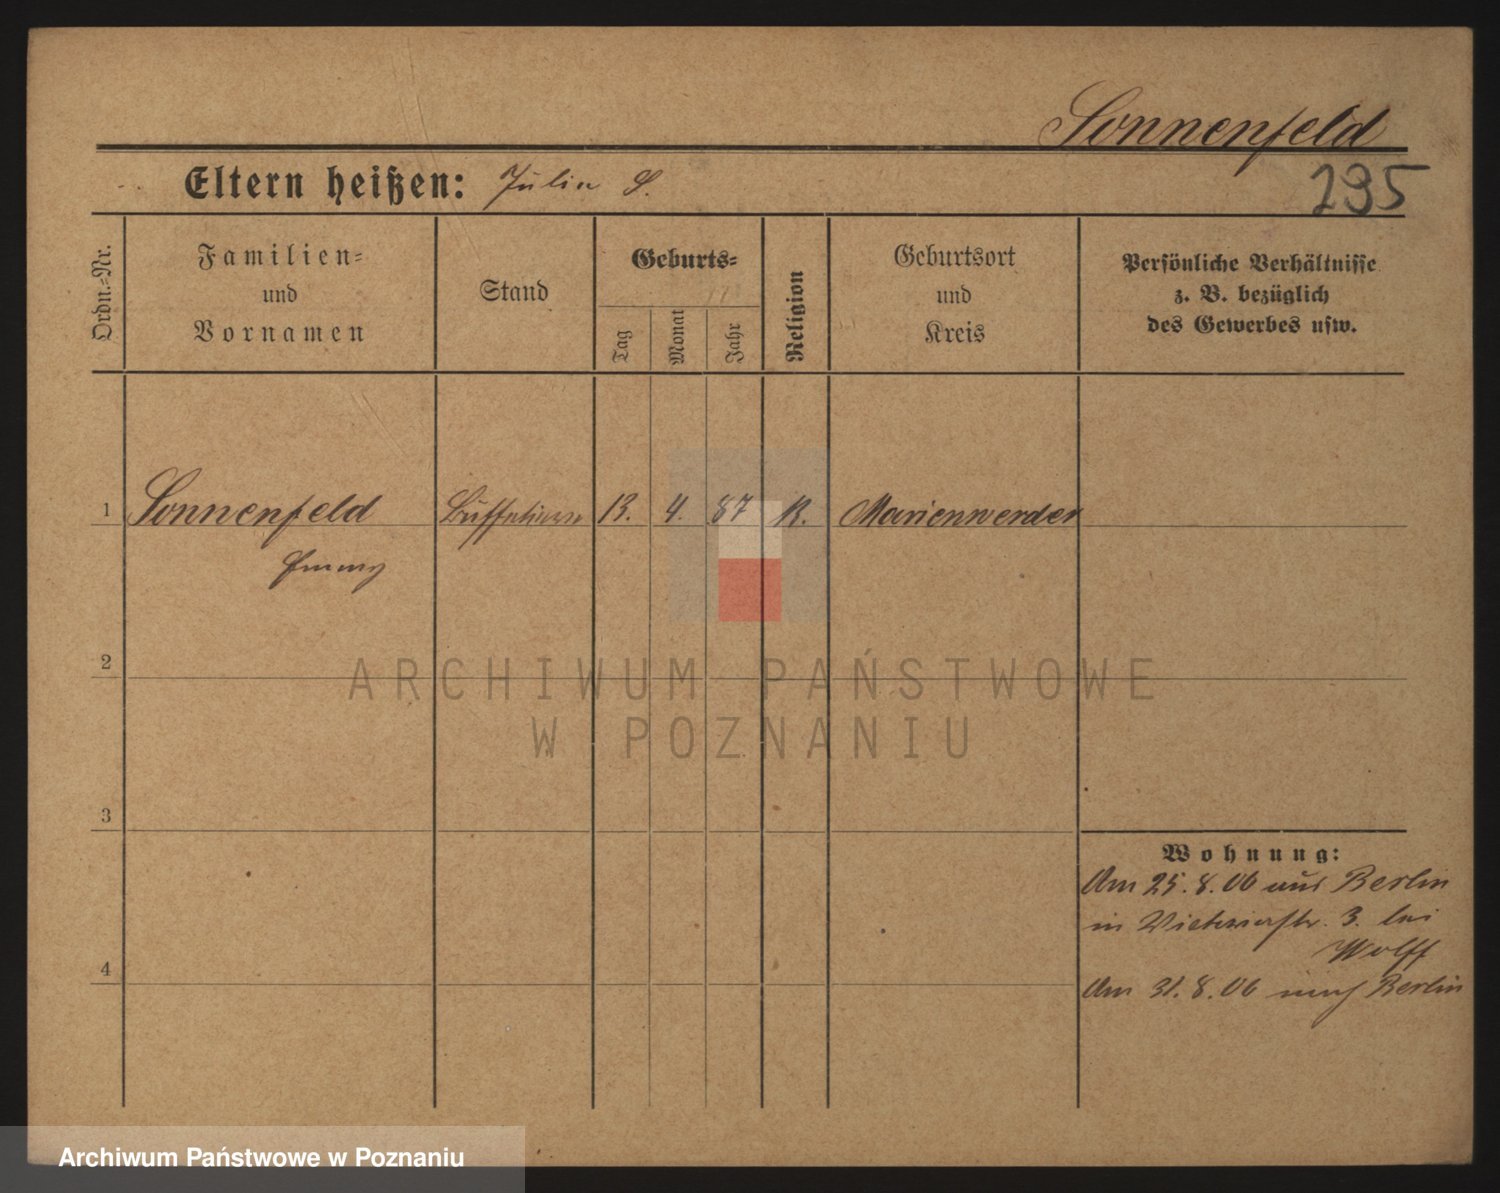 Sonnenfeld
Eltern heißen: Julia S.
295
Ordn.-Nr.
Familien-
und
Vornamen
Stand
Geburts-
Tag
Monat
Jahr
Religion
Geburtsort
und
Kreis
Persönliche Verhältnisse
z. B. bezüglich
des Gewerbes usw.
1 Sonnenfeld 13. 4. 87 K. Marienwerder
Emmy
2
ARCHIWUM PAŃSTWOWE
W POZNANIU
3
Wohnung:
Am 25.8.06 aus Berlin
in Victoriastr. 3. bei
Wolff
4
Am 31.8.06 nach Berlin
Archiwum Państwowe w Poznaniu